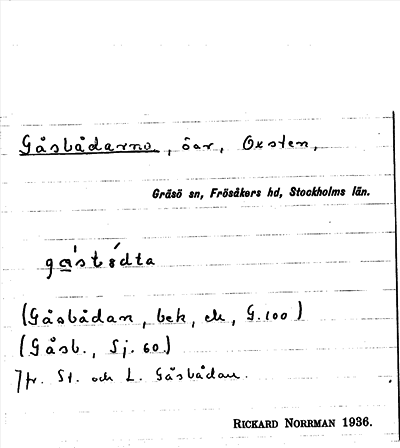 Gåsbådarna, öar, Oxsten,
Gräsö sn, Frösåkers hd, Stockholms län.
(Gåsbådan, bek, ek, G. 100)
(Gåsb., Sj. 60.)
Jfr. St. och L. Gåsbådan.
RICKARD NORRMAN 1936.